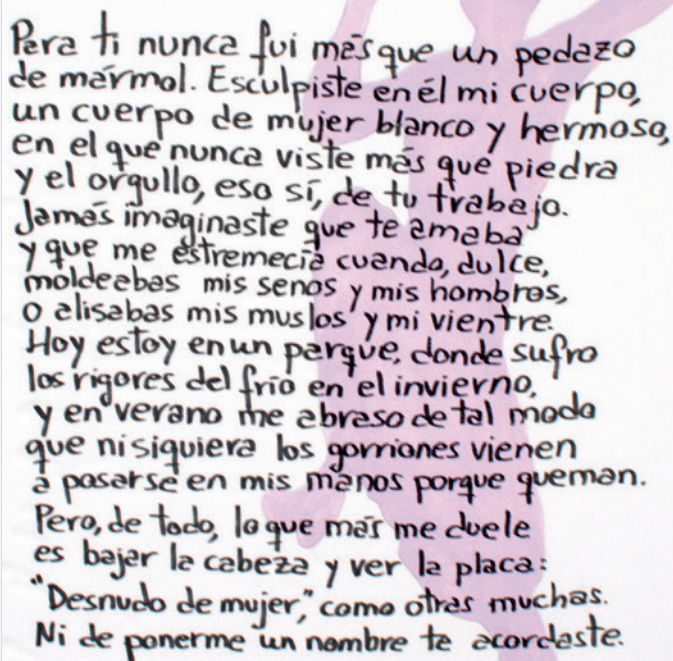 Para ti nunca fui más que un pedazo
de mármol. Esculpiste en él mi cuerpo,
un cuerpo de mujer blanco y hermoso,
en el que nunca viste más que piedra
y el orgullo, eso sí, de tu trabajo.
Jamás imaginaste que te amaba
y que me estremecía cuando, dulce,
moldeabas mis senos y mis hombros,
o alisabas mis muslos y mi vientre.
Hoy estoy en un parque, donde sufro
los rigores del frío en el invierno,
y en verano me abraso de tal modo
que ni siquiera los gorriones vienen
a posarse en mis manos porque queman.
Pero, de todo, lo que más me duele
es bajar la cabeza y ver la placa:
"Desnudo de mujer," como otras muchas.
Ni de ponerme un nombre te acordaste.